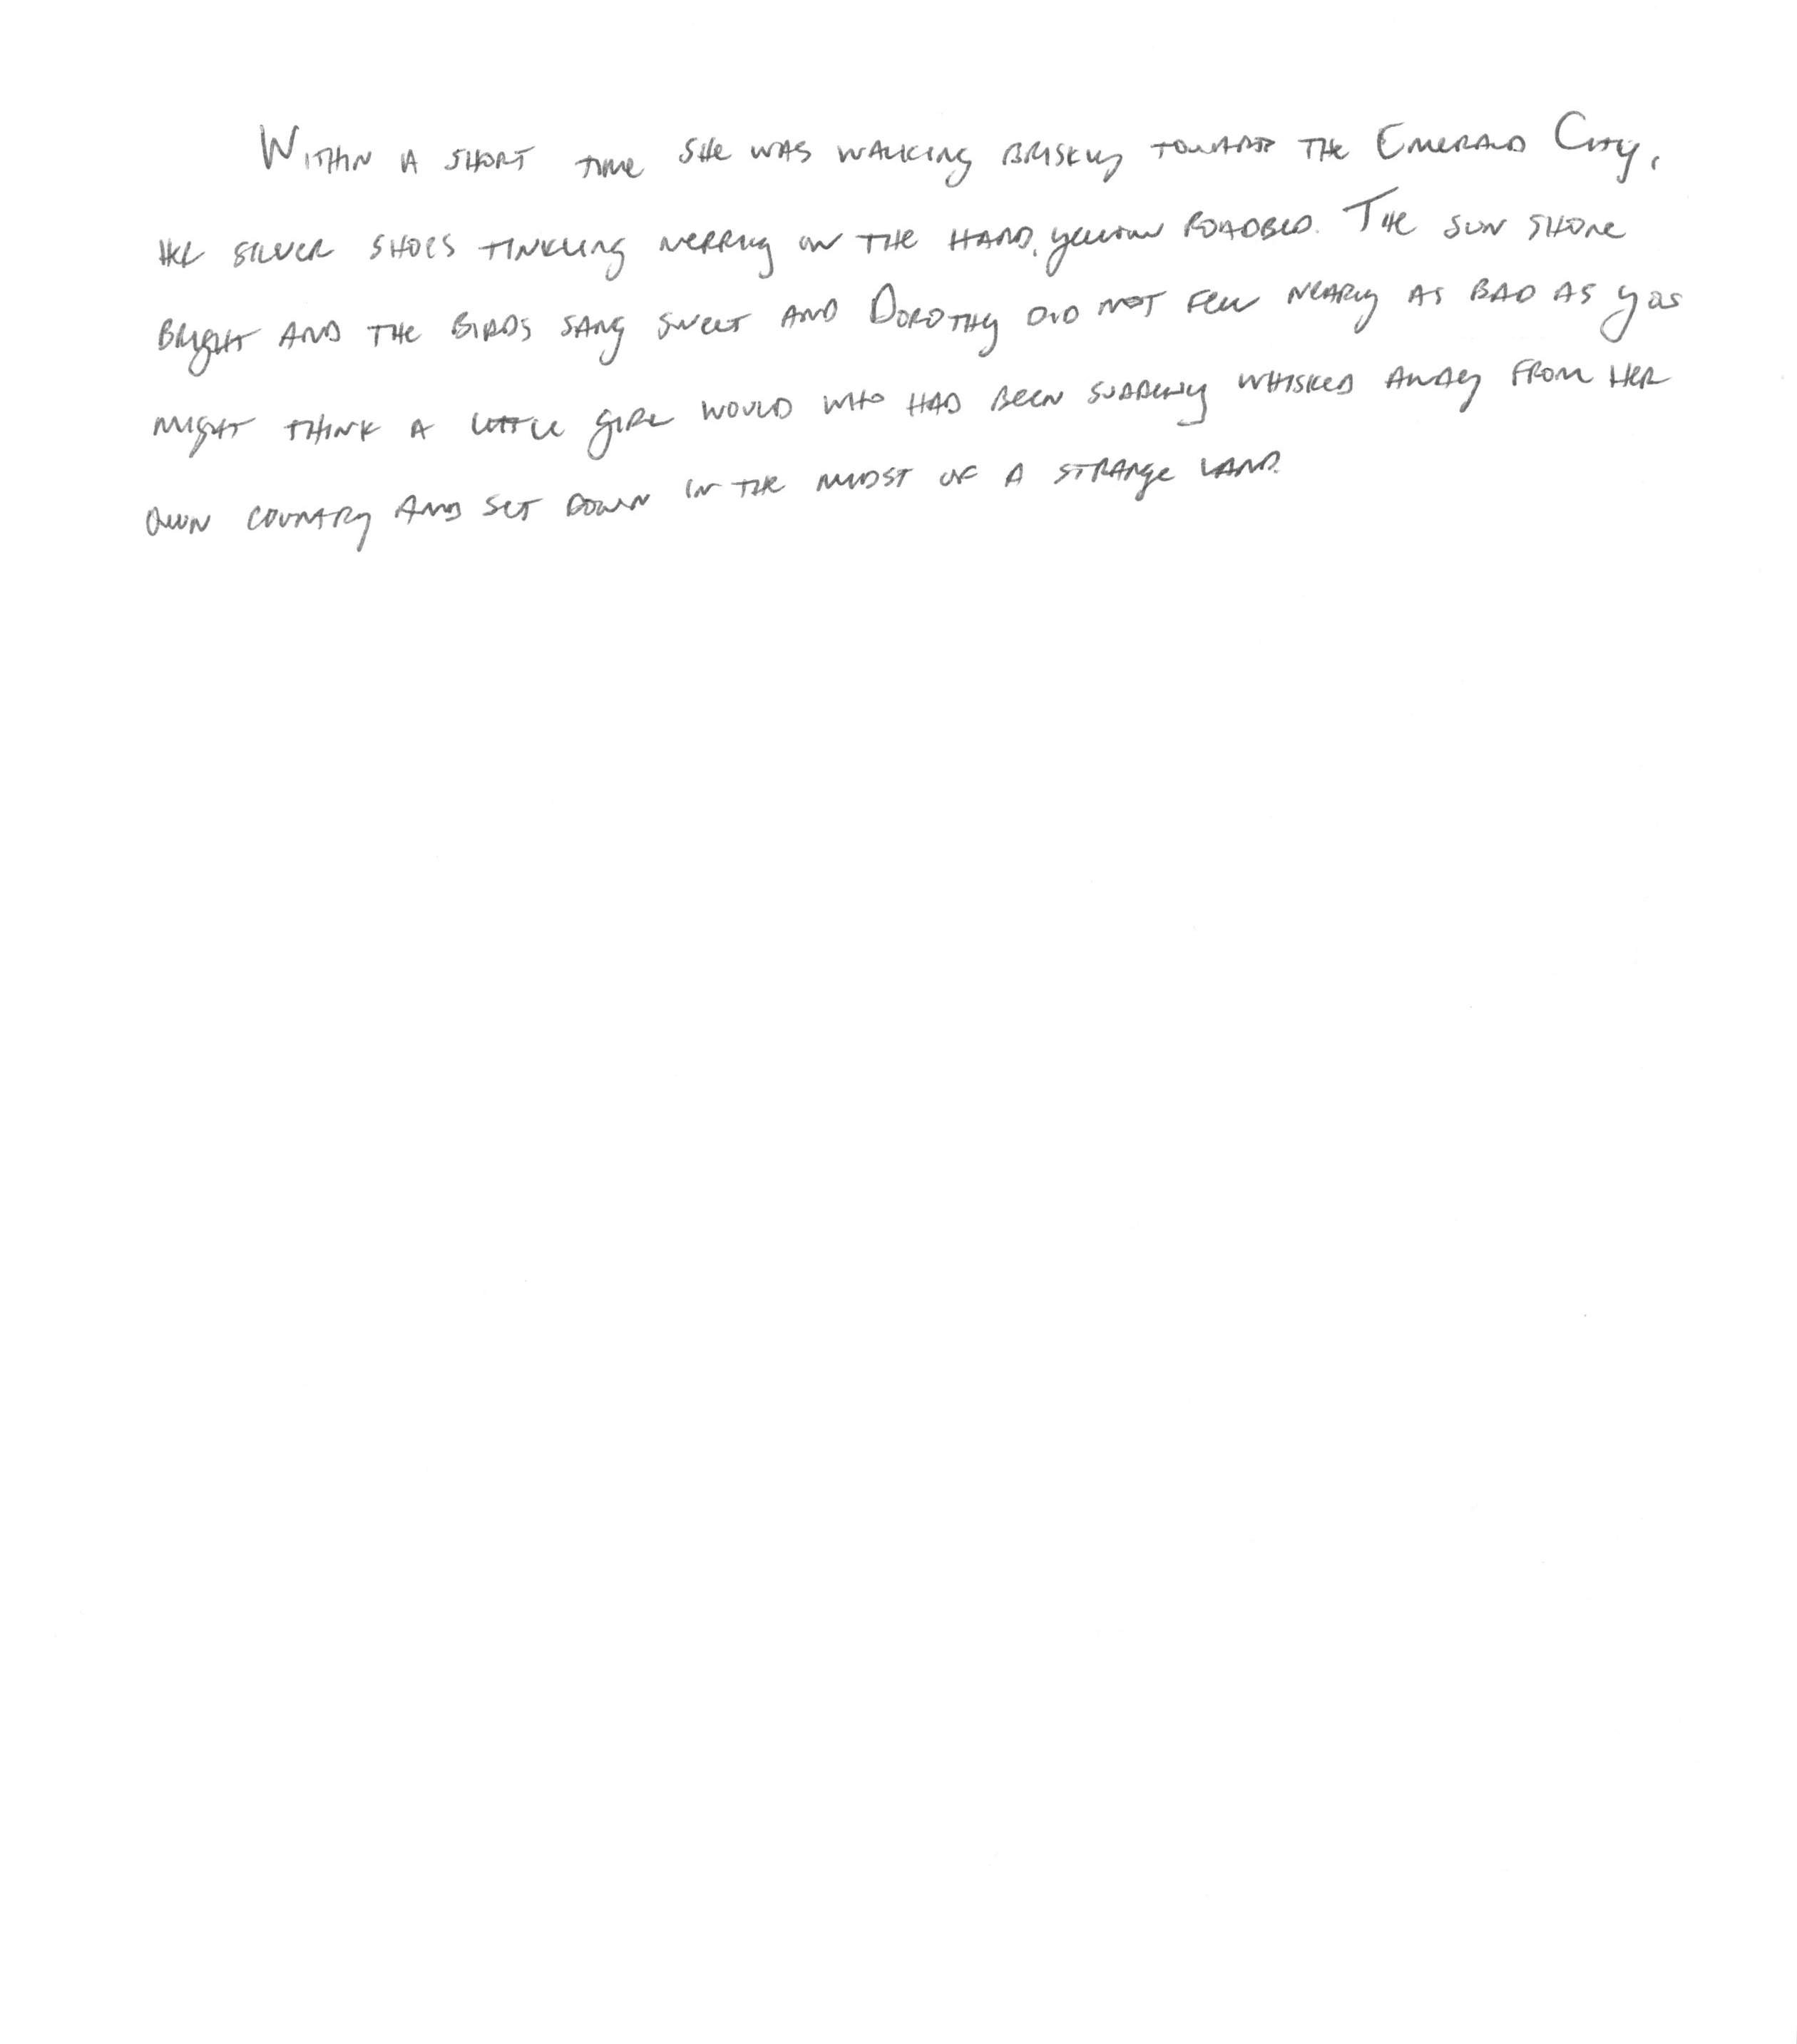 Within a short time she was walking briskly toward the Emerald City,
her silver shoes tinkling merrily on the hard, yellow roadbed. The sun shone
bright and the birds sang sweet and Dorothy did not feel nearly as bad as you
might think a little girl would who had been suddenly whisked away from her
own country and set down in the midst of a strange land.